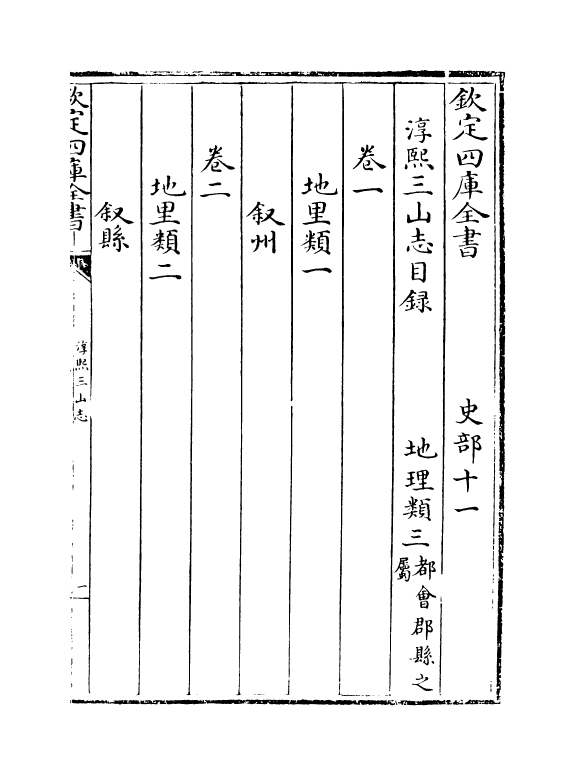 欽定四庫全書　史部十一
淳熙三山志目録　地理類三都會郡縣之屬
卷一
地里類一
叙州
卷二
地里類二
叙縣
欽定四庫全書
淳熙三山志
一